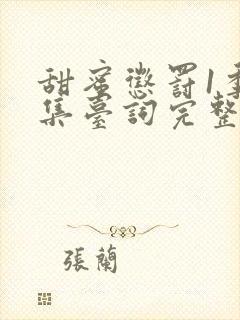 甜蜜懲罰1季
集臺詞完整
張蘭